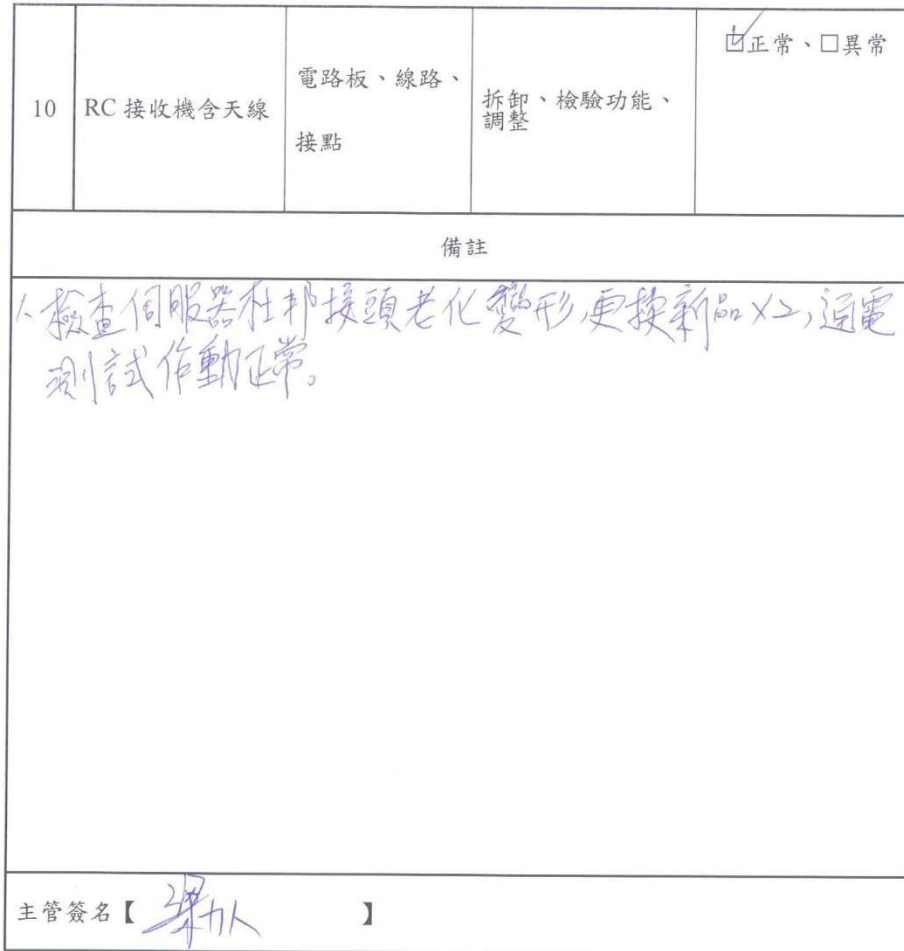 10
RC 接收機含天線
電路板、線路、
接點
拆卸、檢驗功能、
調整
☑正常、☐異常
備註
1、檢查伺服器杜邦接頭老化變形,更換新品x2,通電
測試作動正常。
主管簽名【 】